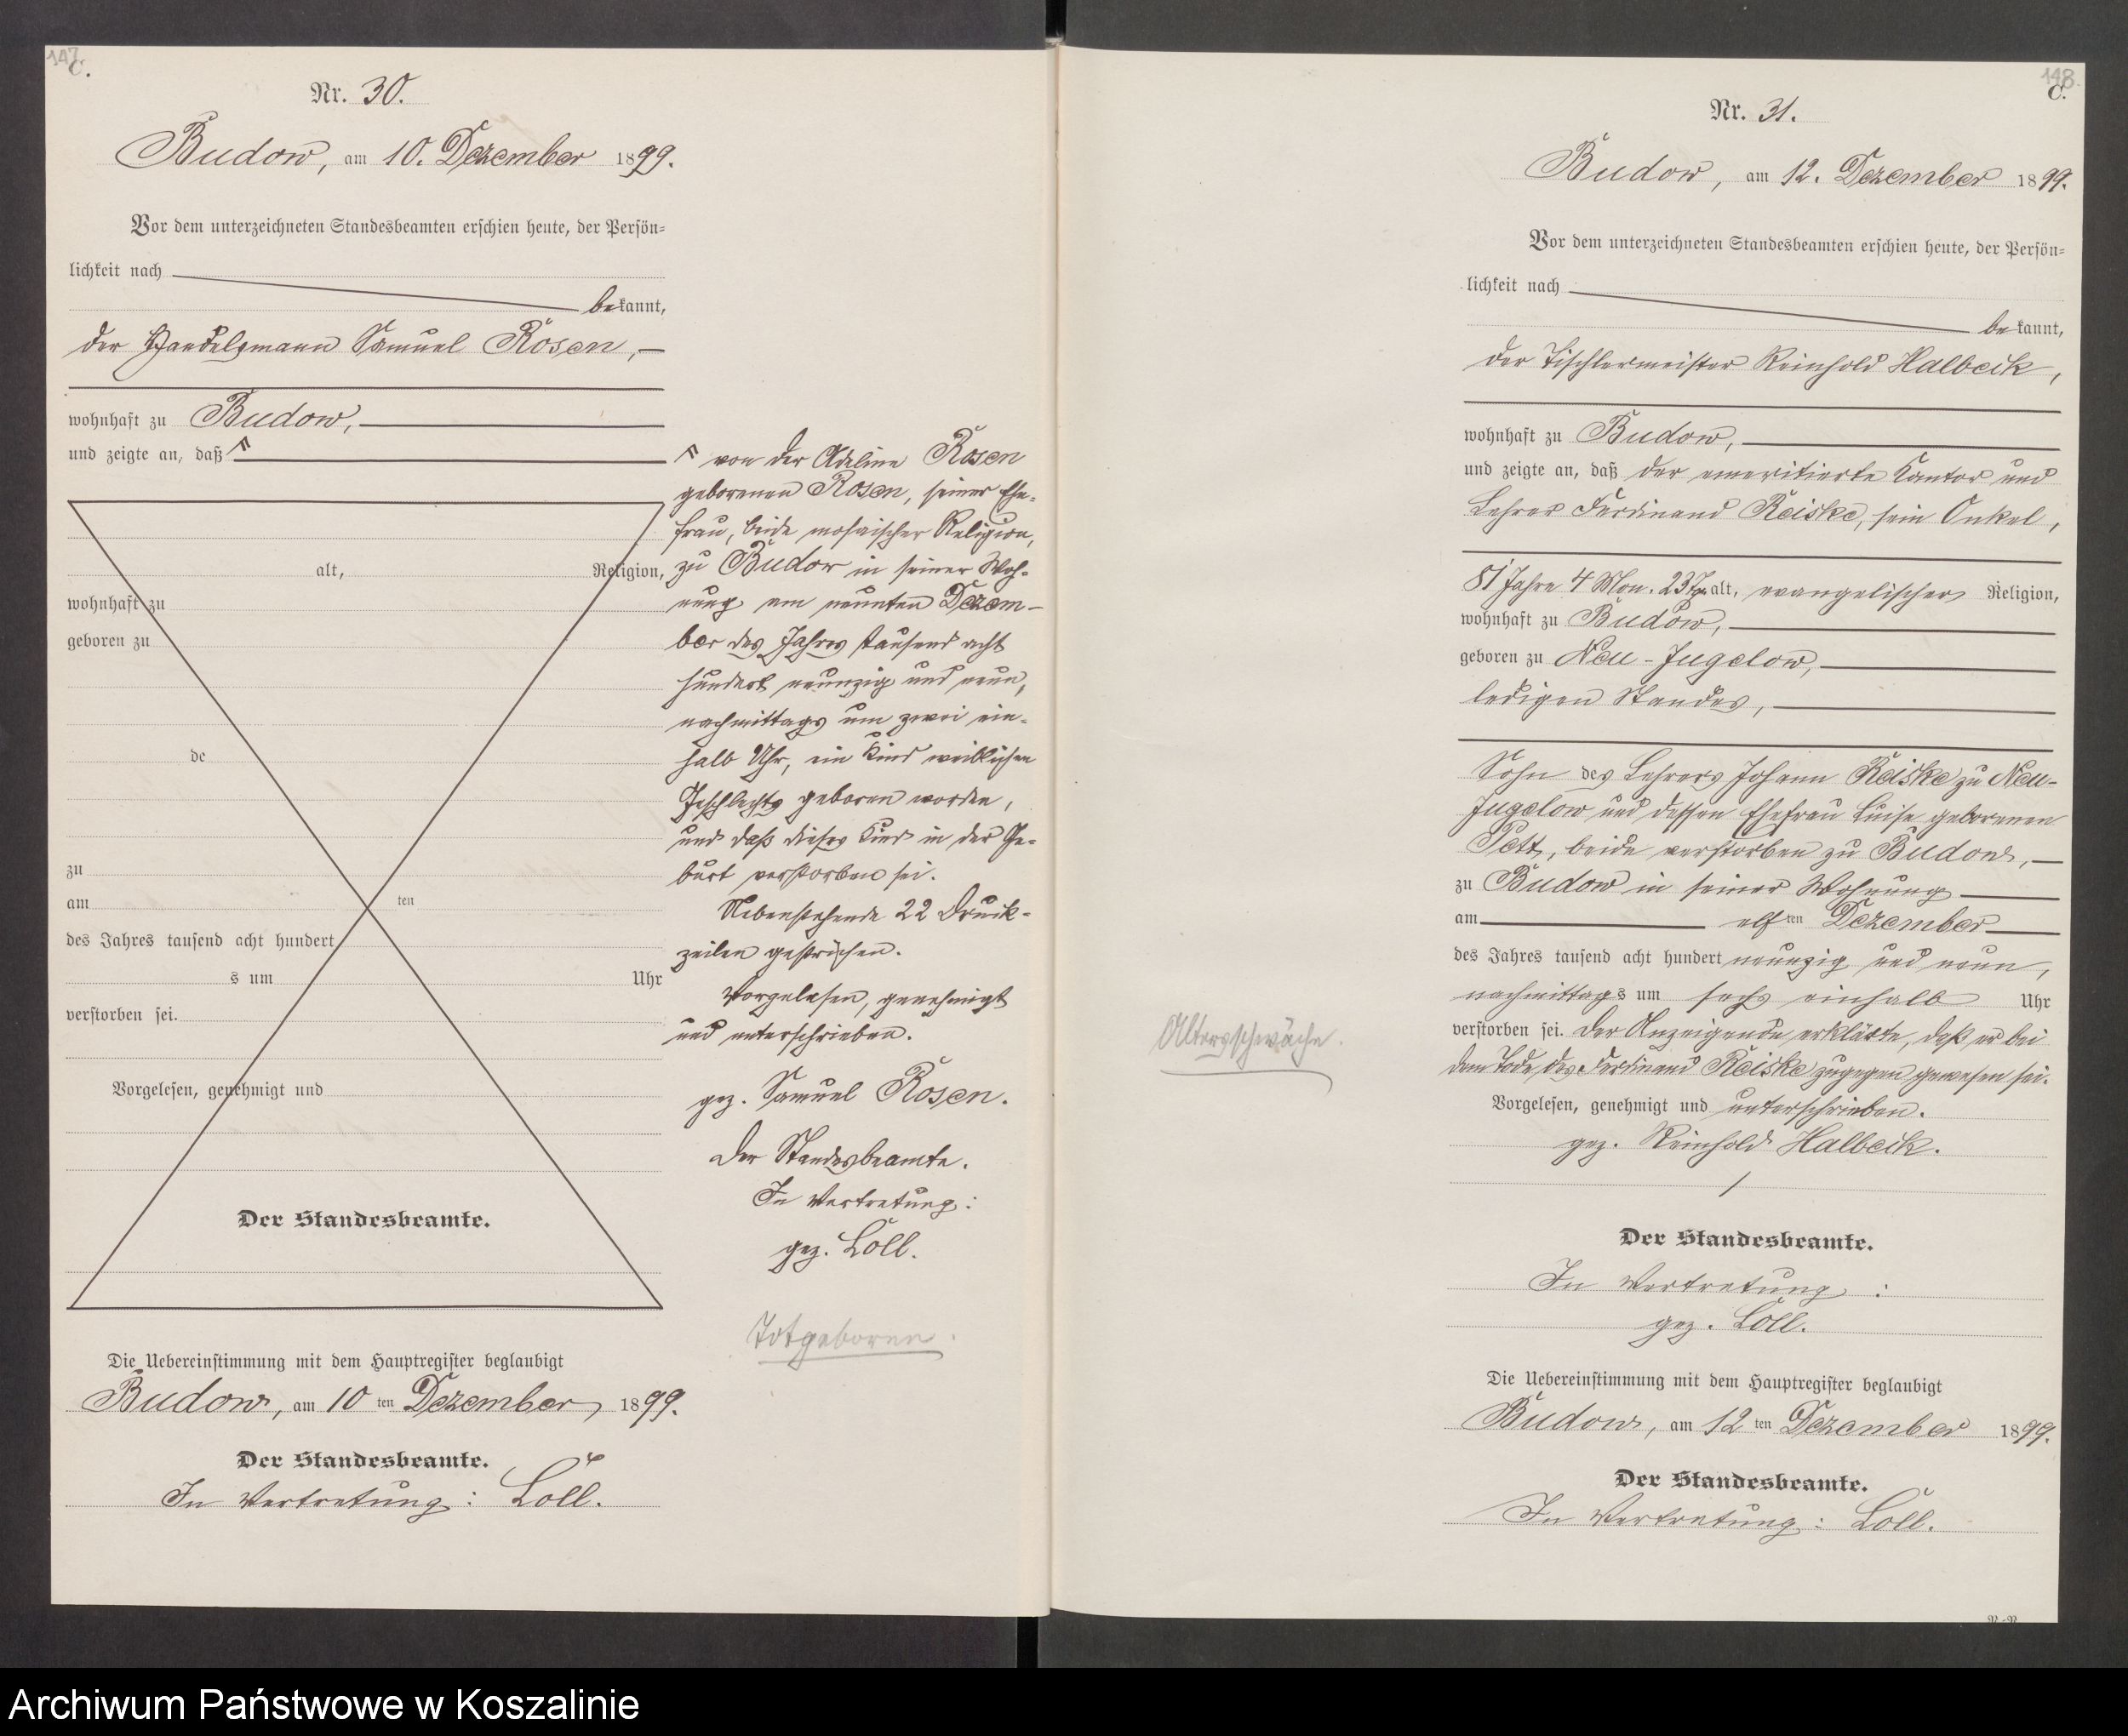 147
C.
Nr. 30.
Budow, am 10. Dezember 1899.
Vor dem unterzeichneten Standesbeamten erschien heute, der Persön-
lichkeit nach
bekannt,
der Handelsmann Samuel Rosen,
wohnhaft zu Budow,
und zeigte an, daß
alt, Religion,
wohnhaft zu
geboren zu
de
zu
am ten
des Jahres tausend acht hundert
s um Uhr
verstorben sei.
Vorgelesen, genehmigt und
Der Standesbeamte.
von der Adeline Rosen
geborenen Rosen, seiner Ehe-
frau, beide mosaischer Religion,
zu Budow in seiner Woh-
nung am neunten Dezem-
ber des Jahres tausend acht
hundert neunzig und neun,
nachmittags um zwei ein-
halb Uhr, ein Kind weiblichen
Geschlechts geboren worden,
und daß dieses Kind in der Ge-
burt verstorben sei.
Nebenstehende 22 Druck-
zeilen gestrichen.
Vorgelesen, genehmigt
und unterschrieben.
gez. Samuel Rosen.
Der Standesbeamte.
In Vertretung:
gez. Löll.
Totgeboren.
Die Uebereinstimmung mit dem Hauptregister beglaubigt
Budow, am 10 ten Dezember 1899.
Der Standesbeamte.
In Vertretung: Löll.
148
C.
Nr. 31.
Budow, am 12. Dezember 1899.
Vor dem unterzeichneten Standesbeamten erschien heute, der Persön-
lichkeit nach
bekannt,
der Tischlermeister Reinhold Halbeck,
wohnhaft zu Budow,
und zeigte an, daß der emeritierte Kantor und
Lehrer Ferdinand Reiske, sein Onkel,
81 Jahre 4 Mon. 23 Tge alt, evangelischer Religion,
wohnhaft zu Budow,
geboren zu Neu-Jugelow,
ledigen Standes,
Sohn des Lehrers Johann Reiske zu Neu-
Jugelow und dessen Ehefrau Luise geborenen
Pett, beide verstorben zu Budow,
zu Budow in seiner Wohnung
am elf ten Dezember
des Jahres tausend acht hundert neunzig und neun,
nachmittags um sechs einhalb Uhr
verstorben sei. Der Anzeigende erklärte, daß er bei
dem Tode des Ferdinand Reiske zugegen gewesen sei.
Vorgelesen, genehmigt und unterschrieben.
gez. Reinhold Halbeck.
Altersschwäche.
Der Standesbeamte.
In Vertretung:
gez. Löll.
Die Uebereinstimmung mit dem Hauptregister beglaubigt
Budow, am 12 ten Dezember 1899.
Der Standesbeamte.
In Vertretung: Löll.
Archiwum Państwowe w Koszalinie